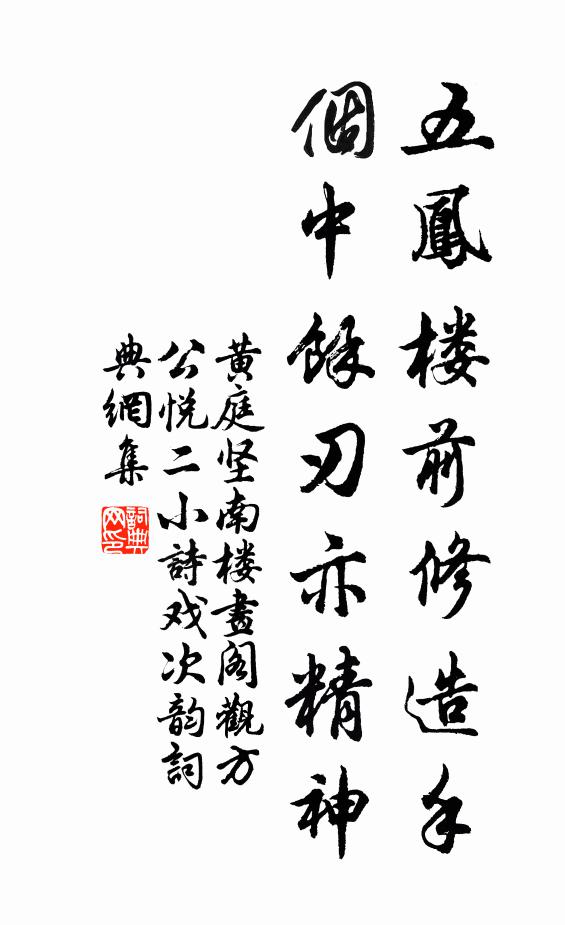 五鳳楼前修造手
個中餘刃亦精神
黄庭坚南楼畫阁觀方
公悦二小詩戏次韵詞
典網集
詞典网印